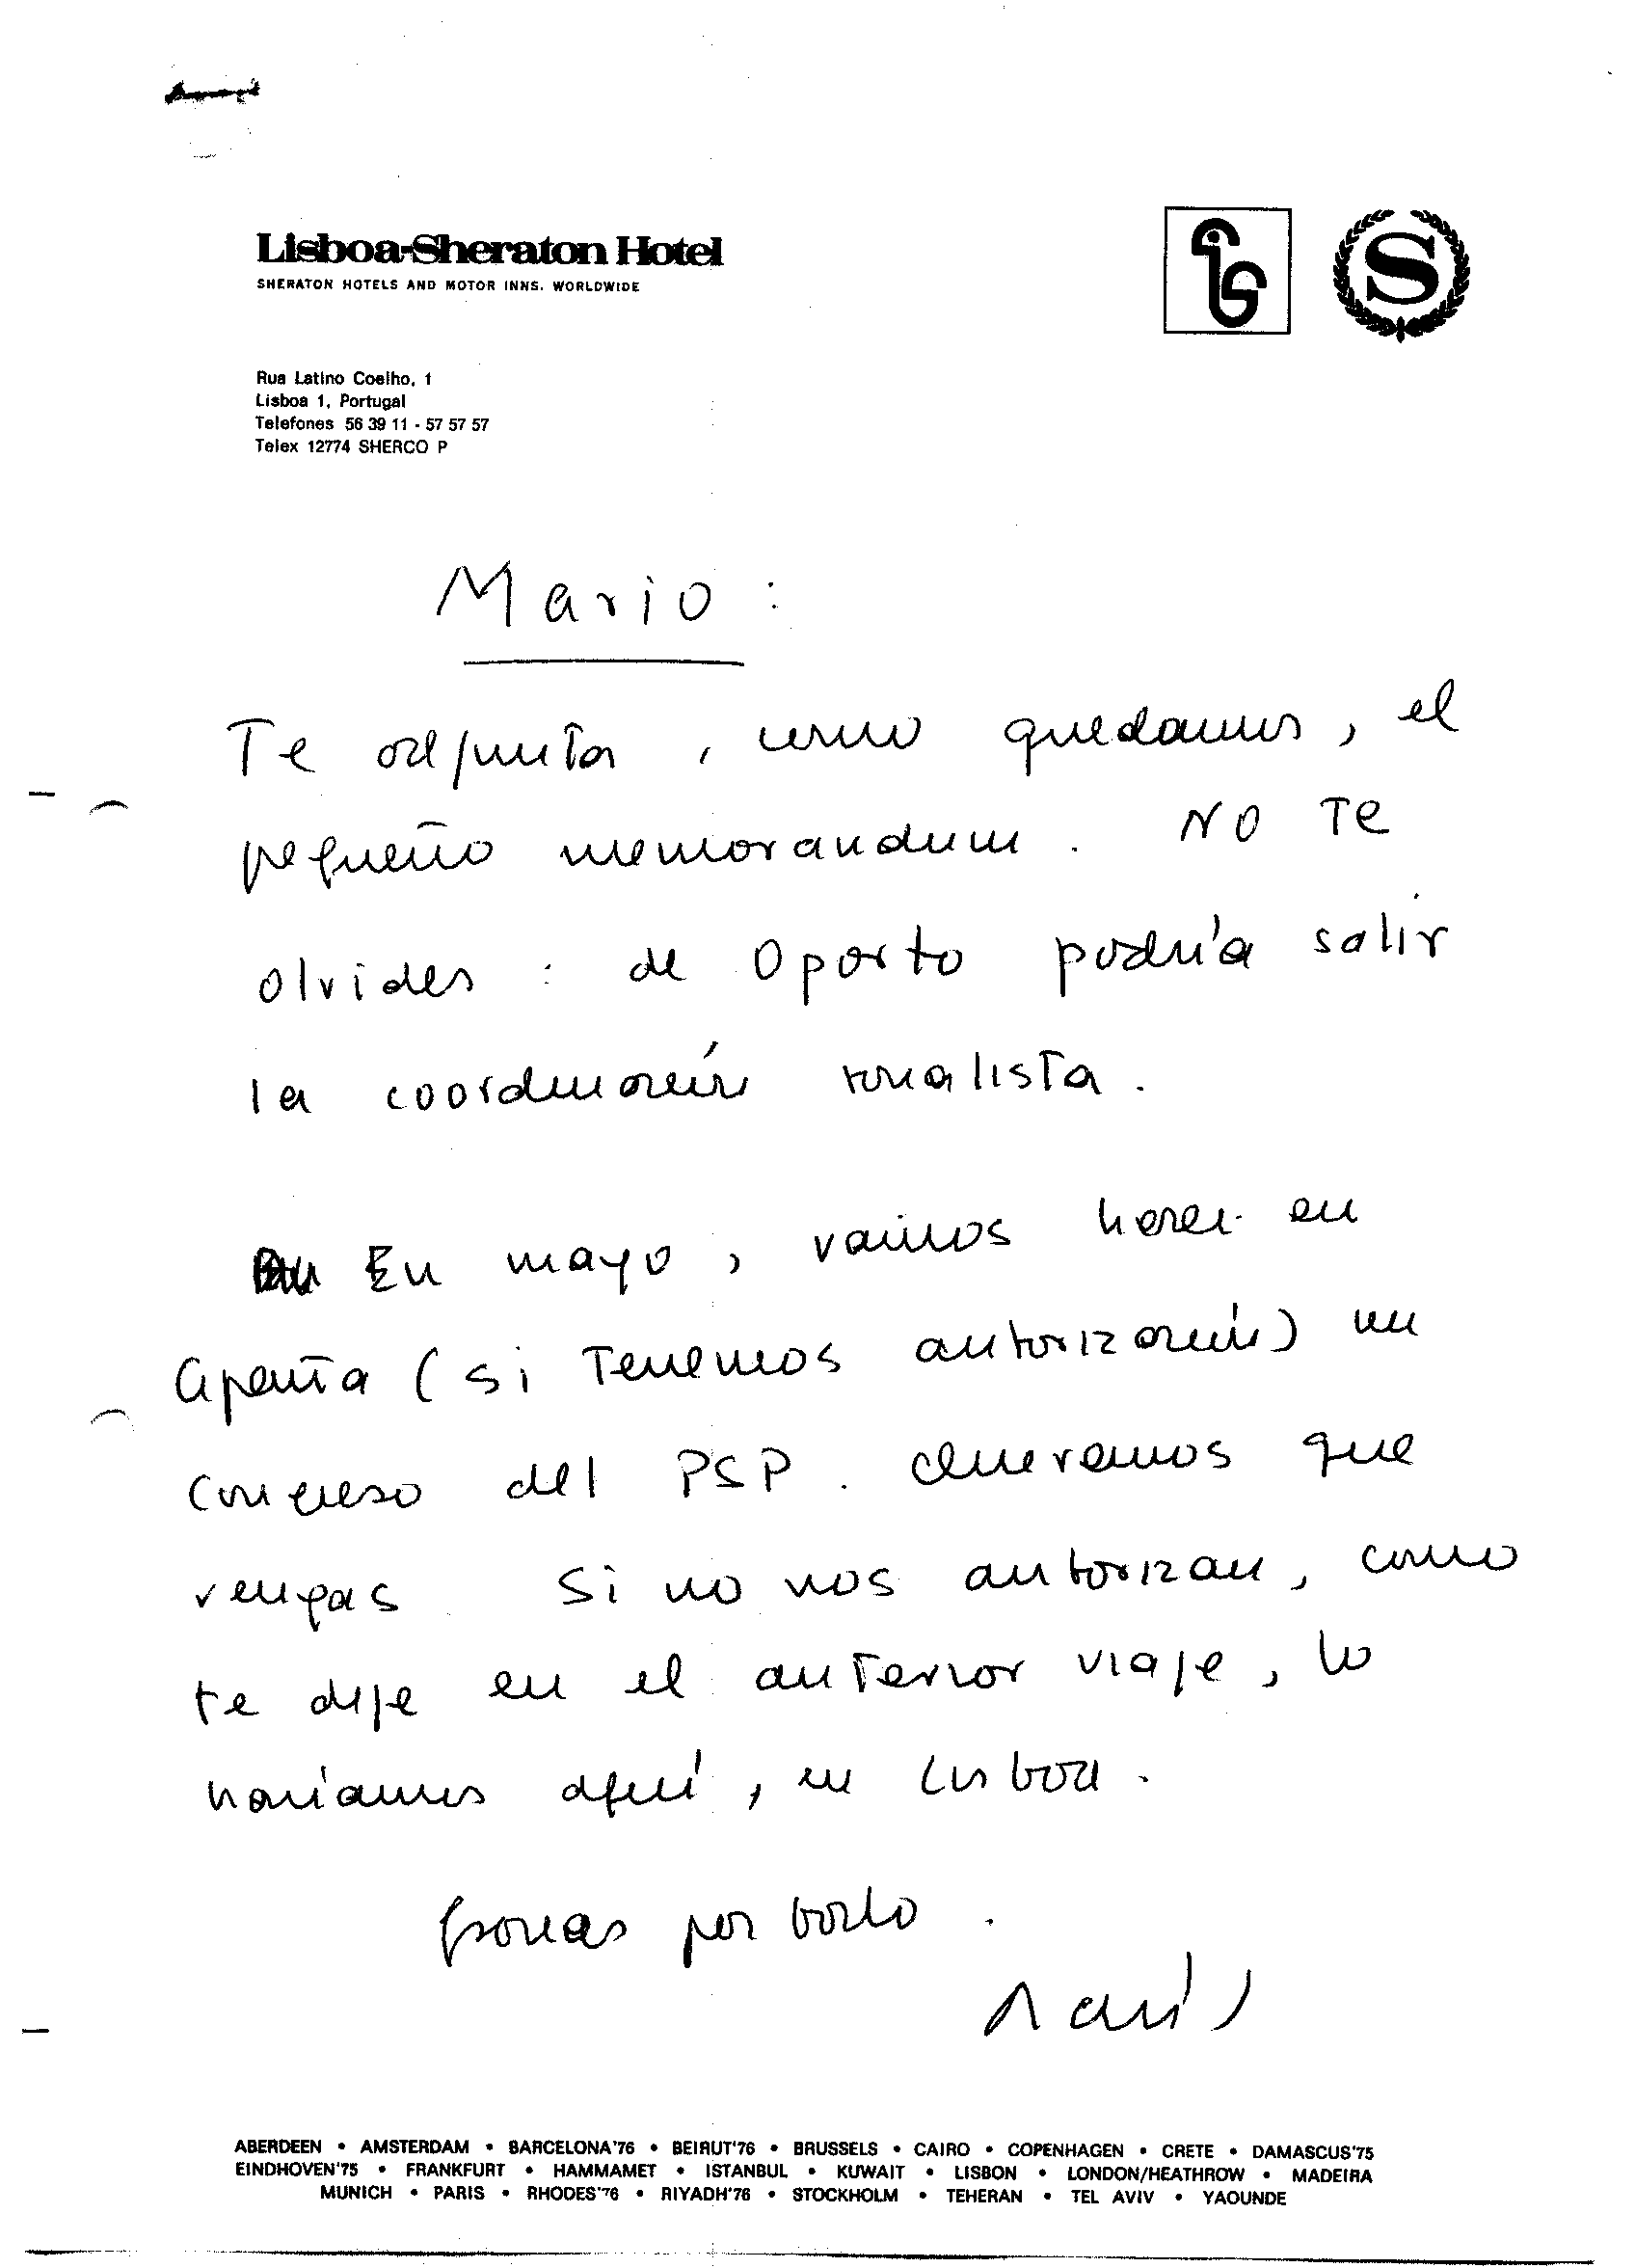 Lisboa-Sheraton Hotel
SHERATON HOTELS AND MOTOR INNS. WORLDWIDE
S
Rua Latino Coelho, 1
Lisboa 1, Portugal
Telefones 56 39 11 - 57 57 57
Telex 12774 SHERCO P
Mario :
Te adjunto, como quedamos, el
pequeño memorandum. No te
olvides : de Oporto podría salir
la coordinación socialista.
En mayo, vamos hacer en
España (si tenemos autorización) un
congreso del PSP. Queremos que
vengas. Si no nos autorizan, como
te dije en el anterior viaje, lo
haríamos aquí, en Lisboa.
Gracias por todo.
Raúl
ABERDEEN • AMSTERDAM • BARCELONA'76 • BEIRUT'76 • BRUSSELS • CAIRO • COPENHAGEN • CRETE • DAMASCUS'75
EINDHOVEN'75 • FRANKFURT • HAMMAMET • ISTANBUL • KUWAIT • LISBON • LONDON/HEATHROW • MADEIRA
MUNICH • PARIS • RHODES'76 • RIYADH'76 • STOCKHOLM • TEHERAN • TEL AVIV • YAOUNDE